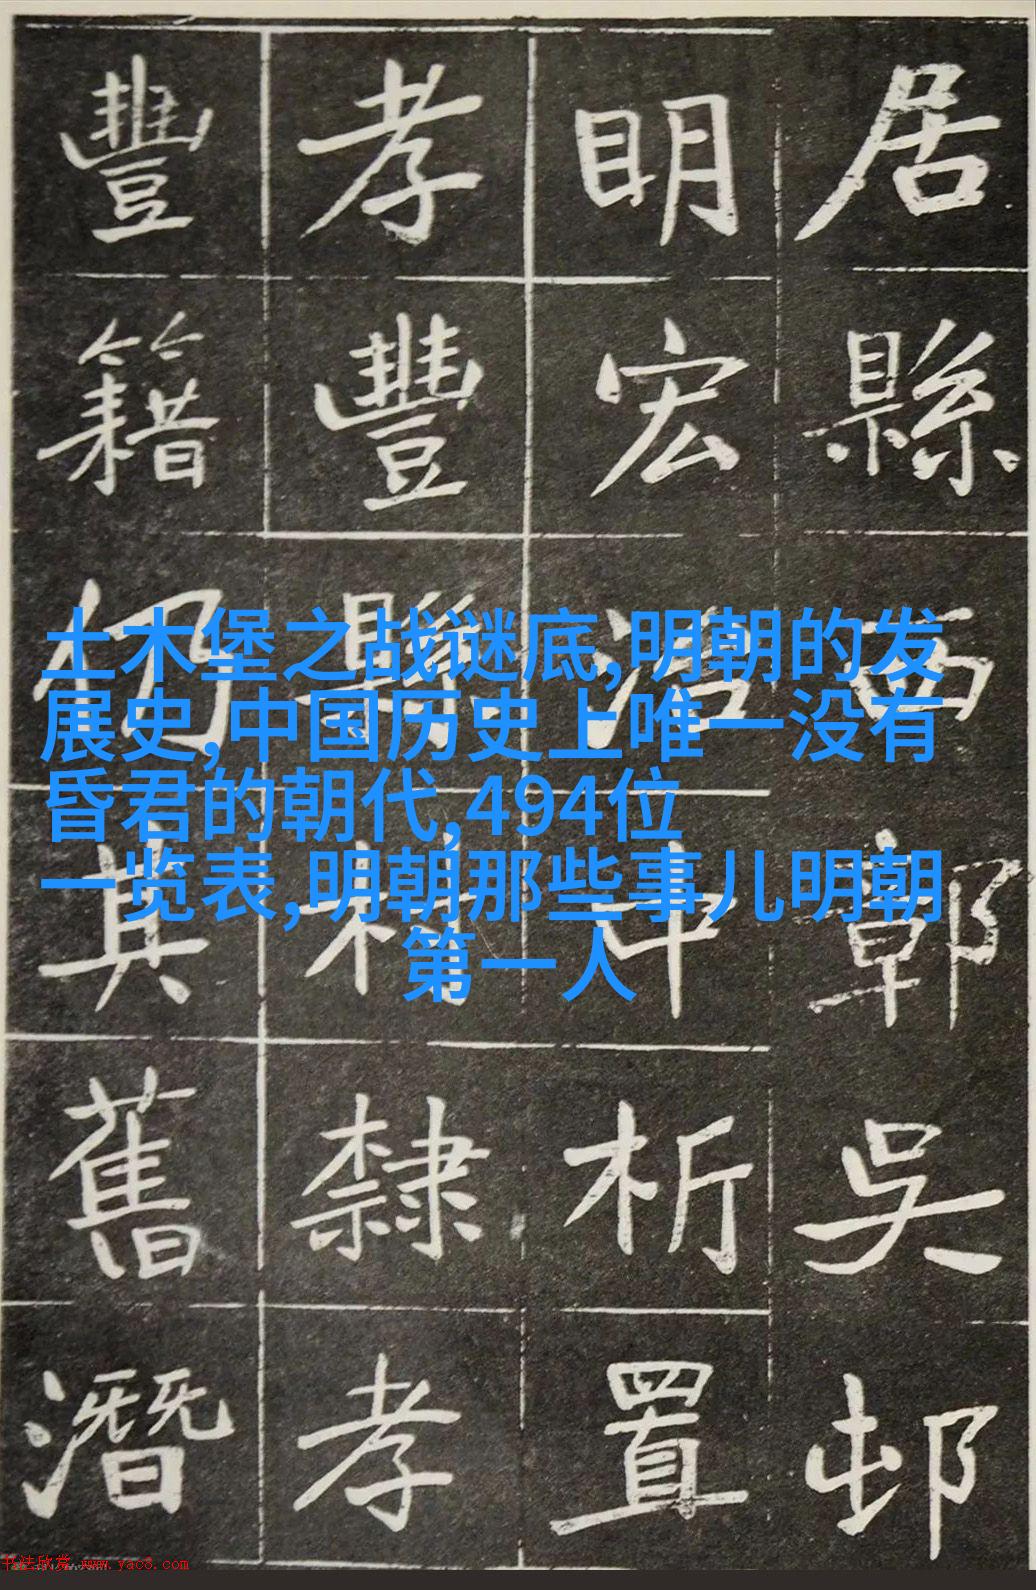 土木堡之战谜底,明朝的发
展史,中国历史上唯一没有
昏君的朝代,494位
一览表,明朝那些事儿明朝
第一人
居縣西鄣吳邨
眀宏治中析置
孝豐縣村隸孝
豐籍仍其舊潛
书法欣赏 www.yac8.com